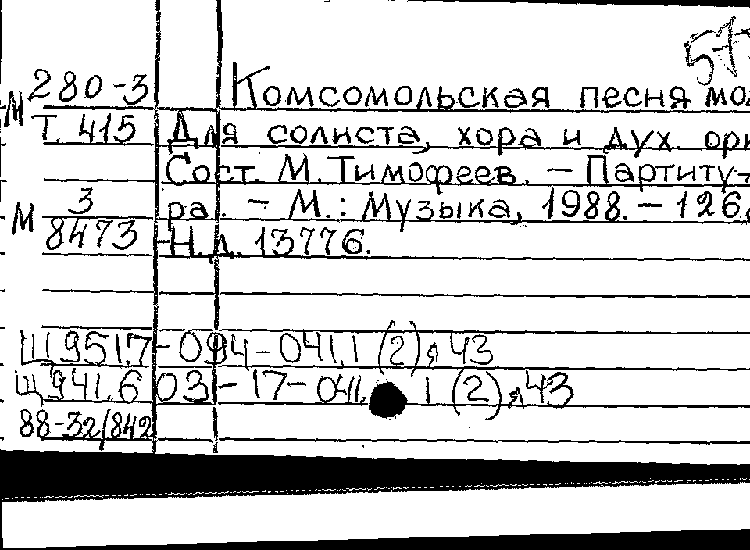 57
М 280-3 Комсомольская песня
Т. 415 Для солиста, хора и дух.
Сост. М. Тимофеев. – Партиту-
М 3 ра. – М.: Музыка, 1988. – 126
8473 Н.д. 13776.
Щ951.7-094-041.1 (2)я43
Щ941.603-17-041.1 (2)я43
88-32/842